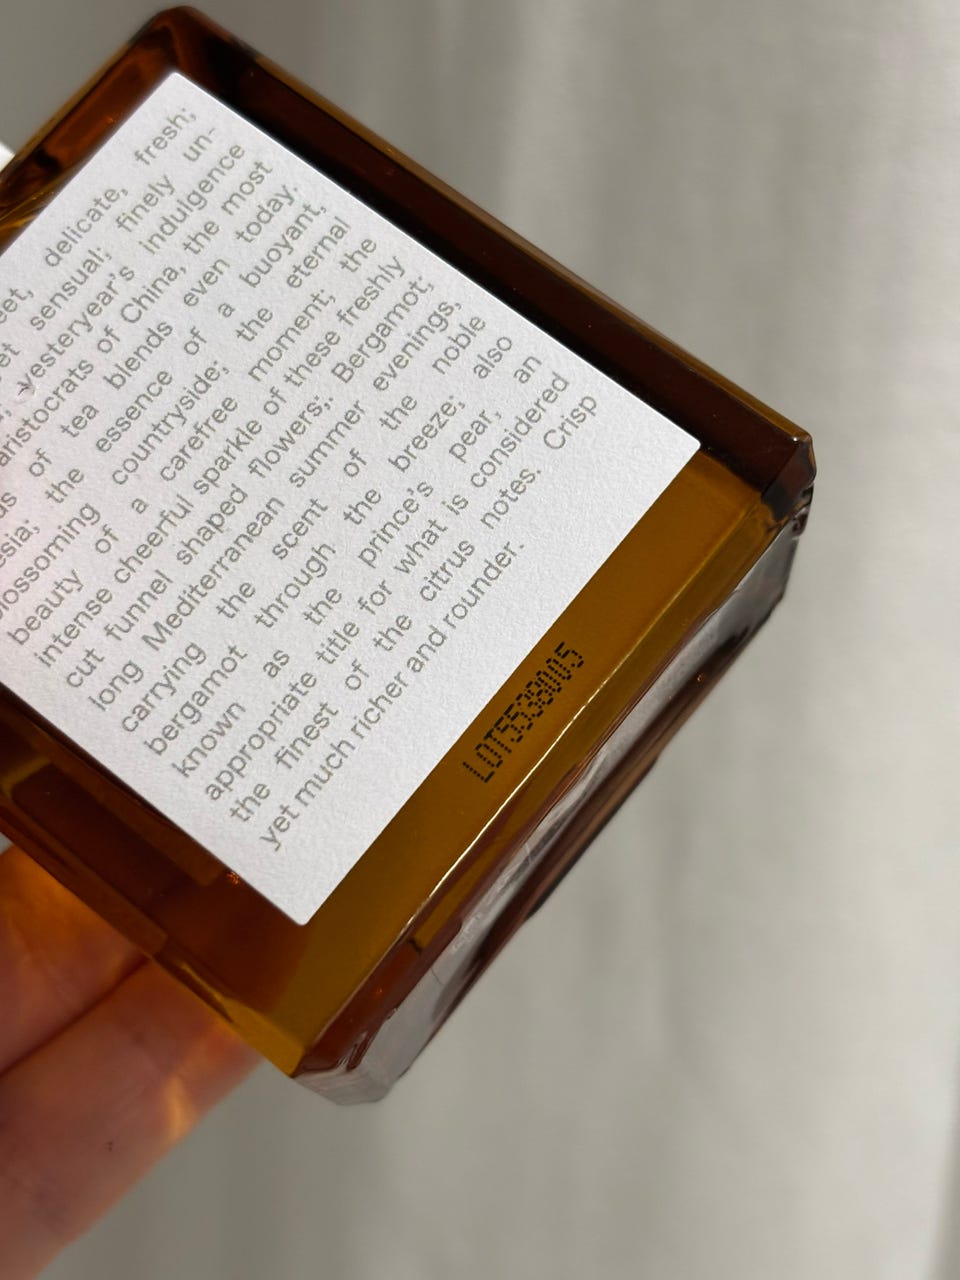 delicate, fresh;
sensual; finely un-
yesteryear's indulgence
aristocrats of China, the most
of tea blends even today.
the essence of a buoyant,
blossoming countryside; the eternal
beauty of a carefree moment; the
intense cheerful sparkle of these freshly
cut funnel shaped flowers;. Bergamot;
long Mediterranean summer evenings,
carrying the scent of the noble
bergamot through the breeze; also
known as the prince's pear, an
appropriate title for what is considered
the finest of the citrus notes. Crisp
yet much richer and rounder.
LOT5538005